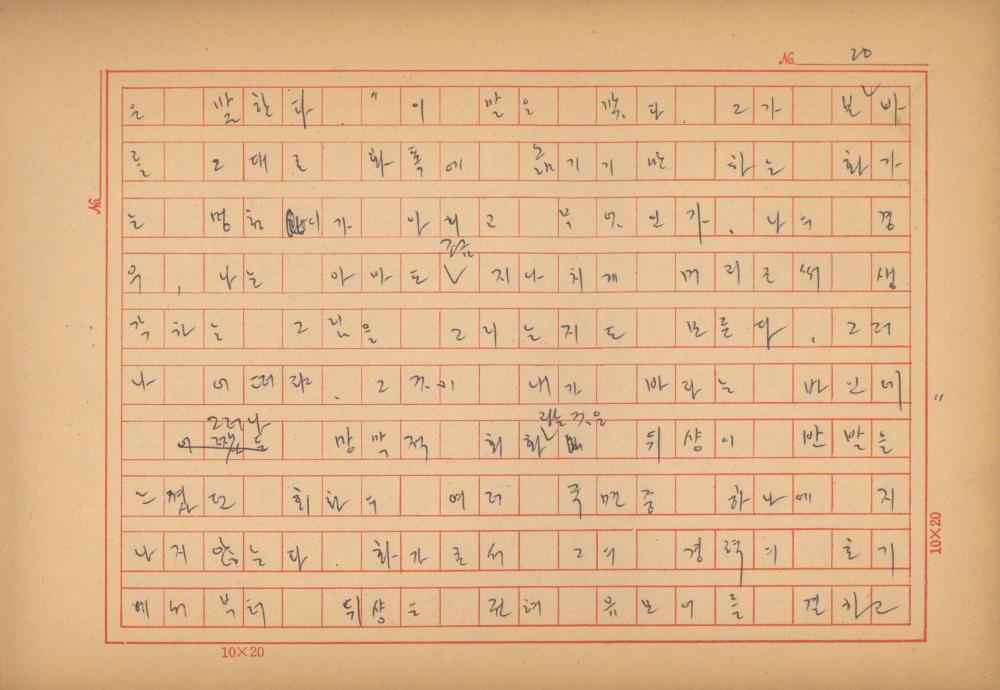 No. 20
은 말한다. "이 말은 깍다. 그가 본 바
를 그대로 화폭에 옮기기만 하는 화가
는 멍청이가 아니고 무엇인가. 나의 경
우, 나는 아마도 조금 지나치게 머리로써 생
각하는 그림을 그리는지도 모른다. 그러
나 어떠랴. 그것이 내가 바라는 바인데"
그러나 망막적 회화라는 것은 뒤샹이 반발을
느꼈던 회화의 여러 국면중 하나에 지
나지 않는다. 화가로서 그의 경력의 초기
에서부터 뒤샹은 유모어를 결하고
10×20
10×20
No.